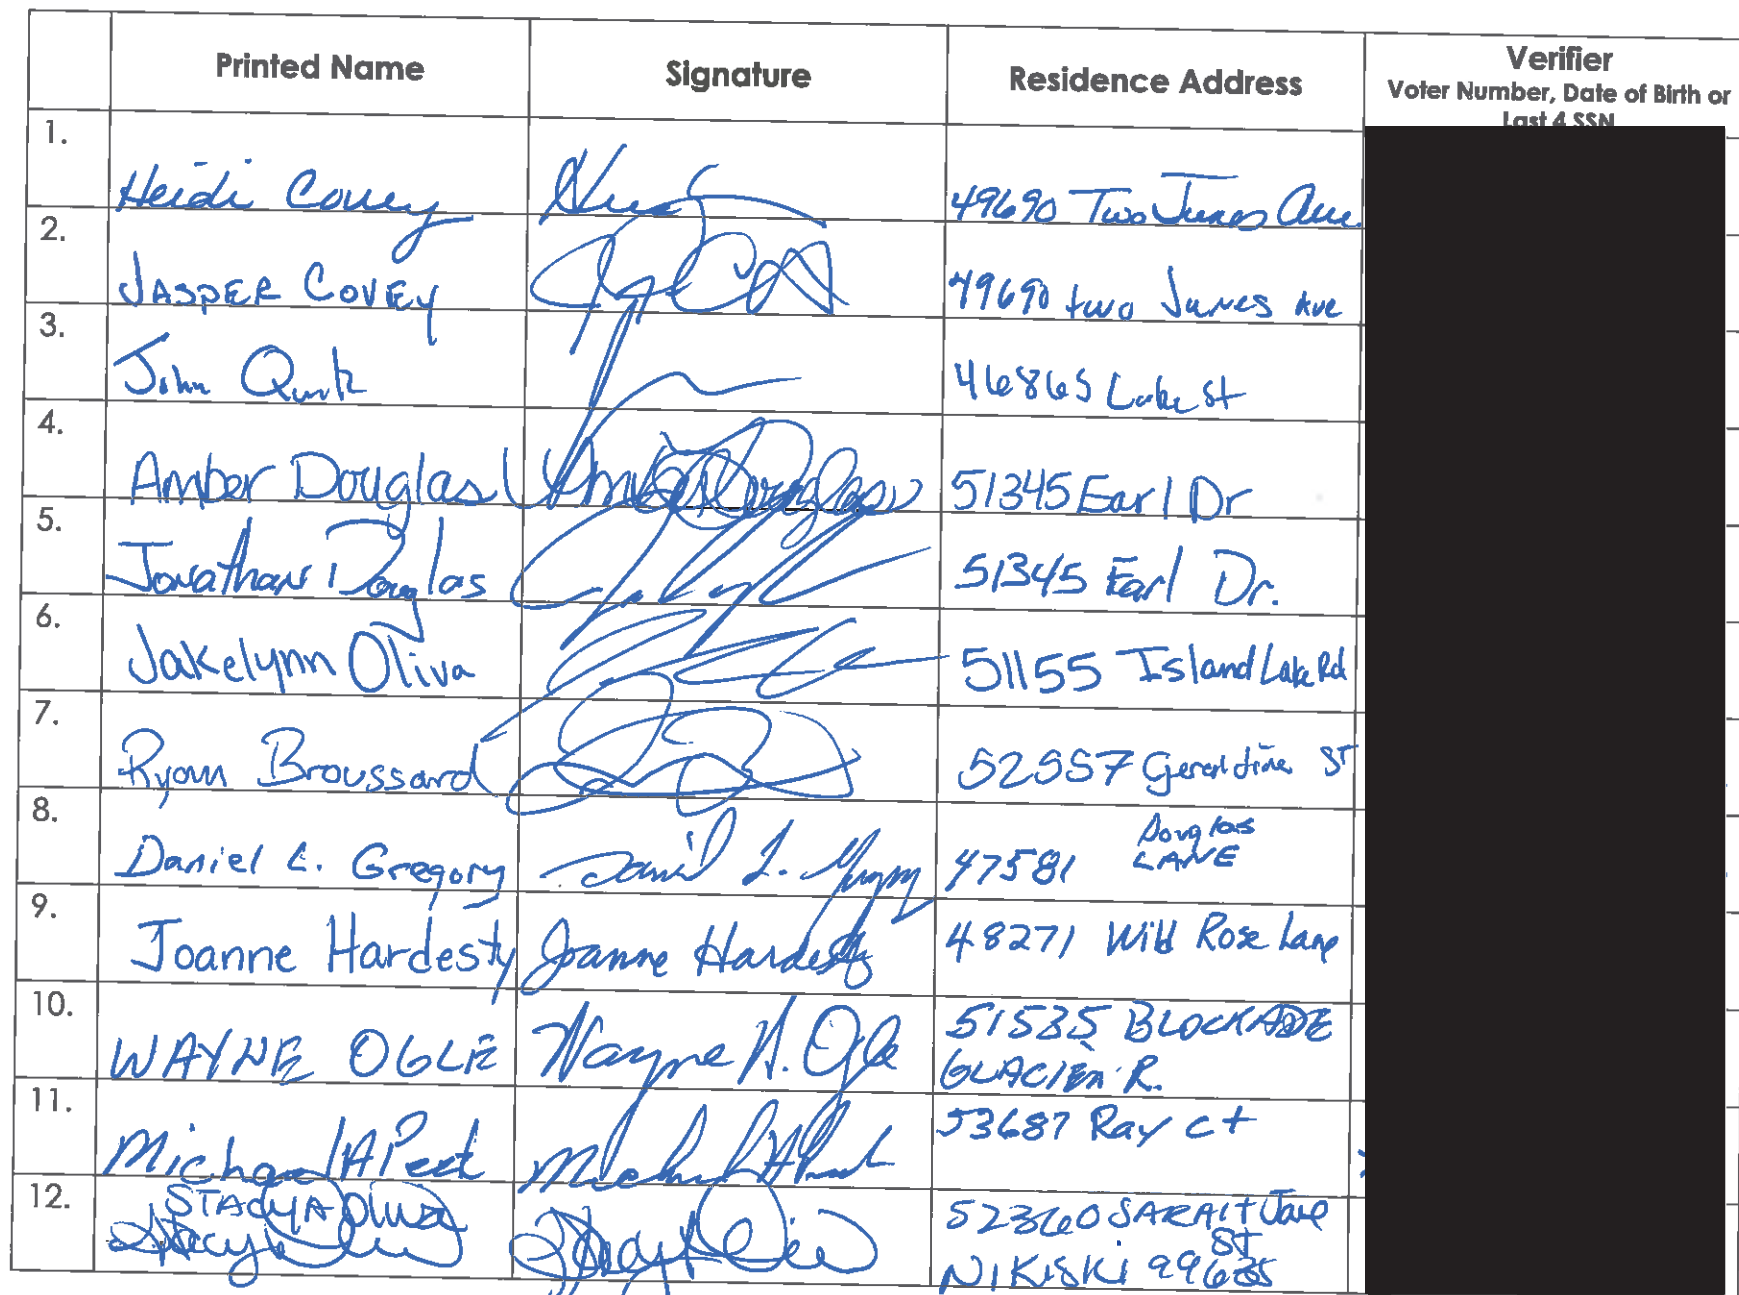 Printed Name Signature Residence Address Verifier
Voter Number, Date of Birth or
Last 4 SSN
1. Heidi Covey 49690 Two Junes Ave
2. JASPER COVEY 49690 two Junes Ave
3. John Quirk 46865 Lake St
4. Amber Douglas Amber Douglas 51345 Earl Dr
5. Jonathan Douglas 51345 Earl Dr.
6. Jakelynn Oliva 51155 Island Lake Rd
7. Ryan Broussard 52557 Geraldine ST
8. Daniel L. Gregory Daniel L. Gregory 47581 Douglas
LANE
9. Joanne Hardesty Joanne Hardesty 48271 Wild Rose Lane
10. WAYNE OGLE Wayne H. Ogle 51535 BLOCKADE
GLACIER R.
11. Michael A Peet Michael A Peet 53687 Ray Ct
12. STACY A Oliva 52360 SARAH Jane
ST
NIKISKI 99635